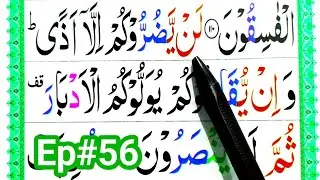 الْفٰسِقُوْنَ ﴿۱۱۰﴾ لَنْ يَّضُرُّوْكُمْ اِلَّاۤ اَذًى ؕ
وَ اِنْ يُّقَا كُمْ يُوَلُّوْكُمُ الْاَدْبَارَ قف
ثُمَّ
Ep#56